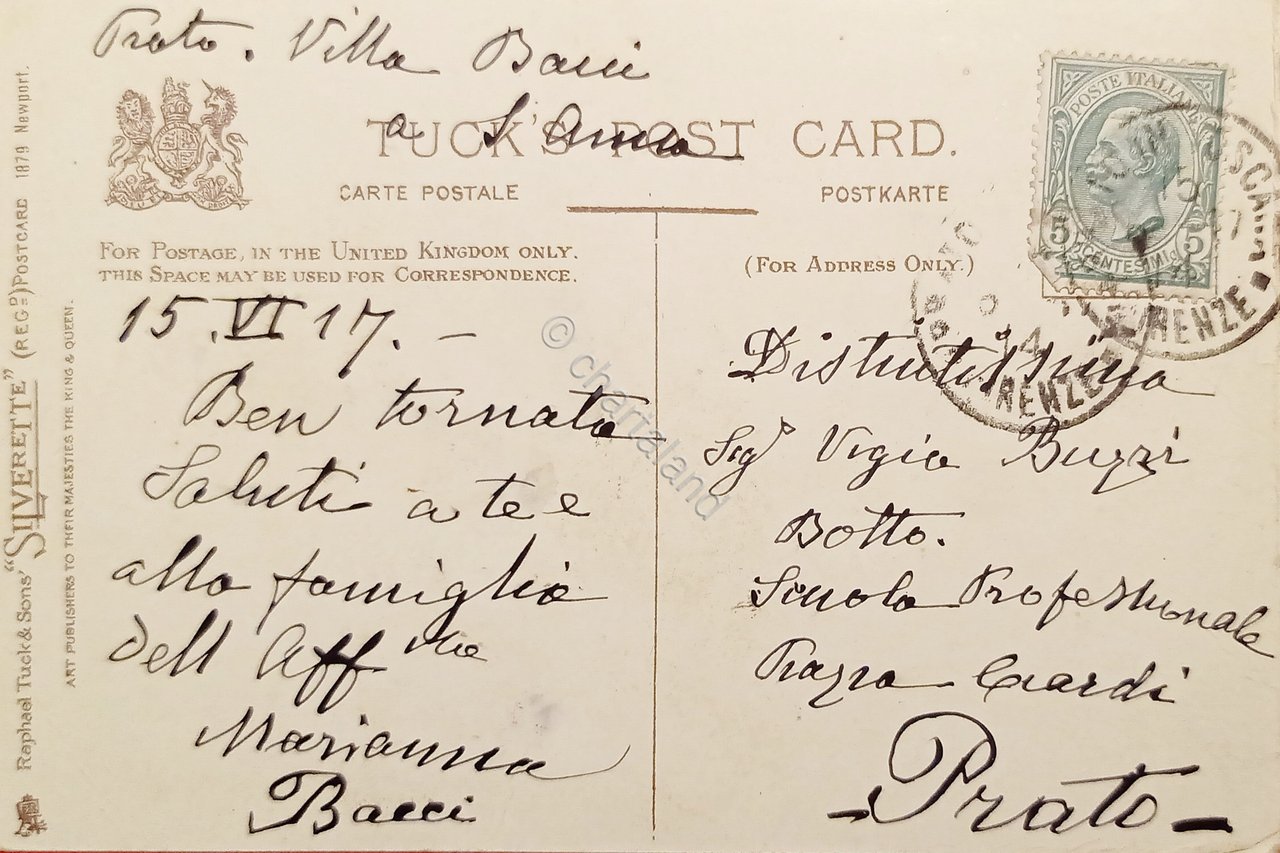 Prato. Villa Bacci
a S. Anna
TUCK'S POST CARD.
CARTE POSTALE
POSTKARTE
FOR POSTAGE, IN THE UNITED KINGDOM ONLY.
THIS SPACE MAY BE USED FOR CORRESPONDENCE.
(FOR ADDRESS ONLY.)
15.VI 17. —
Ben tornata
Saluti a te e
alla famiglia
dell Aff ma
Marianna
Bacci
Distintissima
Sig.ra Vigia Buzzi
Botto.
Scuola Professionale
Piazza Ciardi
- Prato -
POSTE ITALIANE
5 CENTESIMI 5
FIRENZE
FIRENZE
Raphael Tuck & Sons' "SILVERETTE" (REGD) POSTCARD 1879 Newport.
ART PUBLISHERS TO THEIR MAJESTIES THE KING & QUEEN.
© chartaland